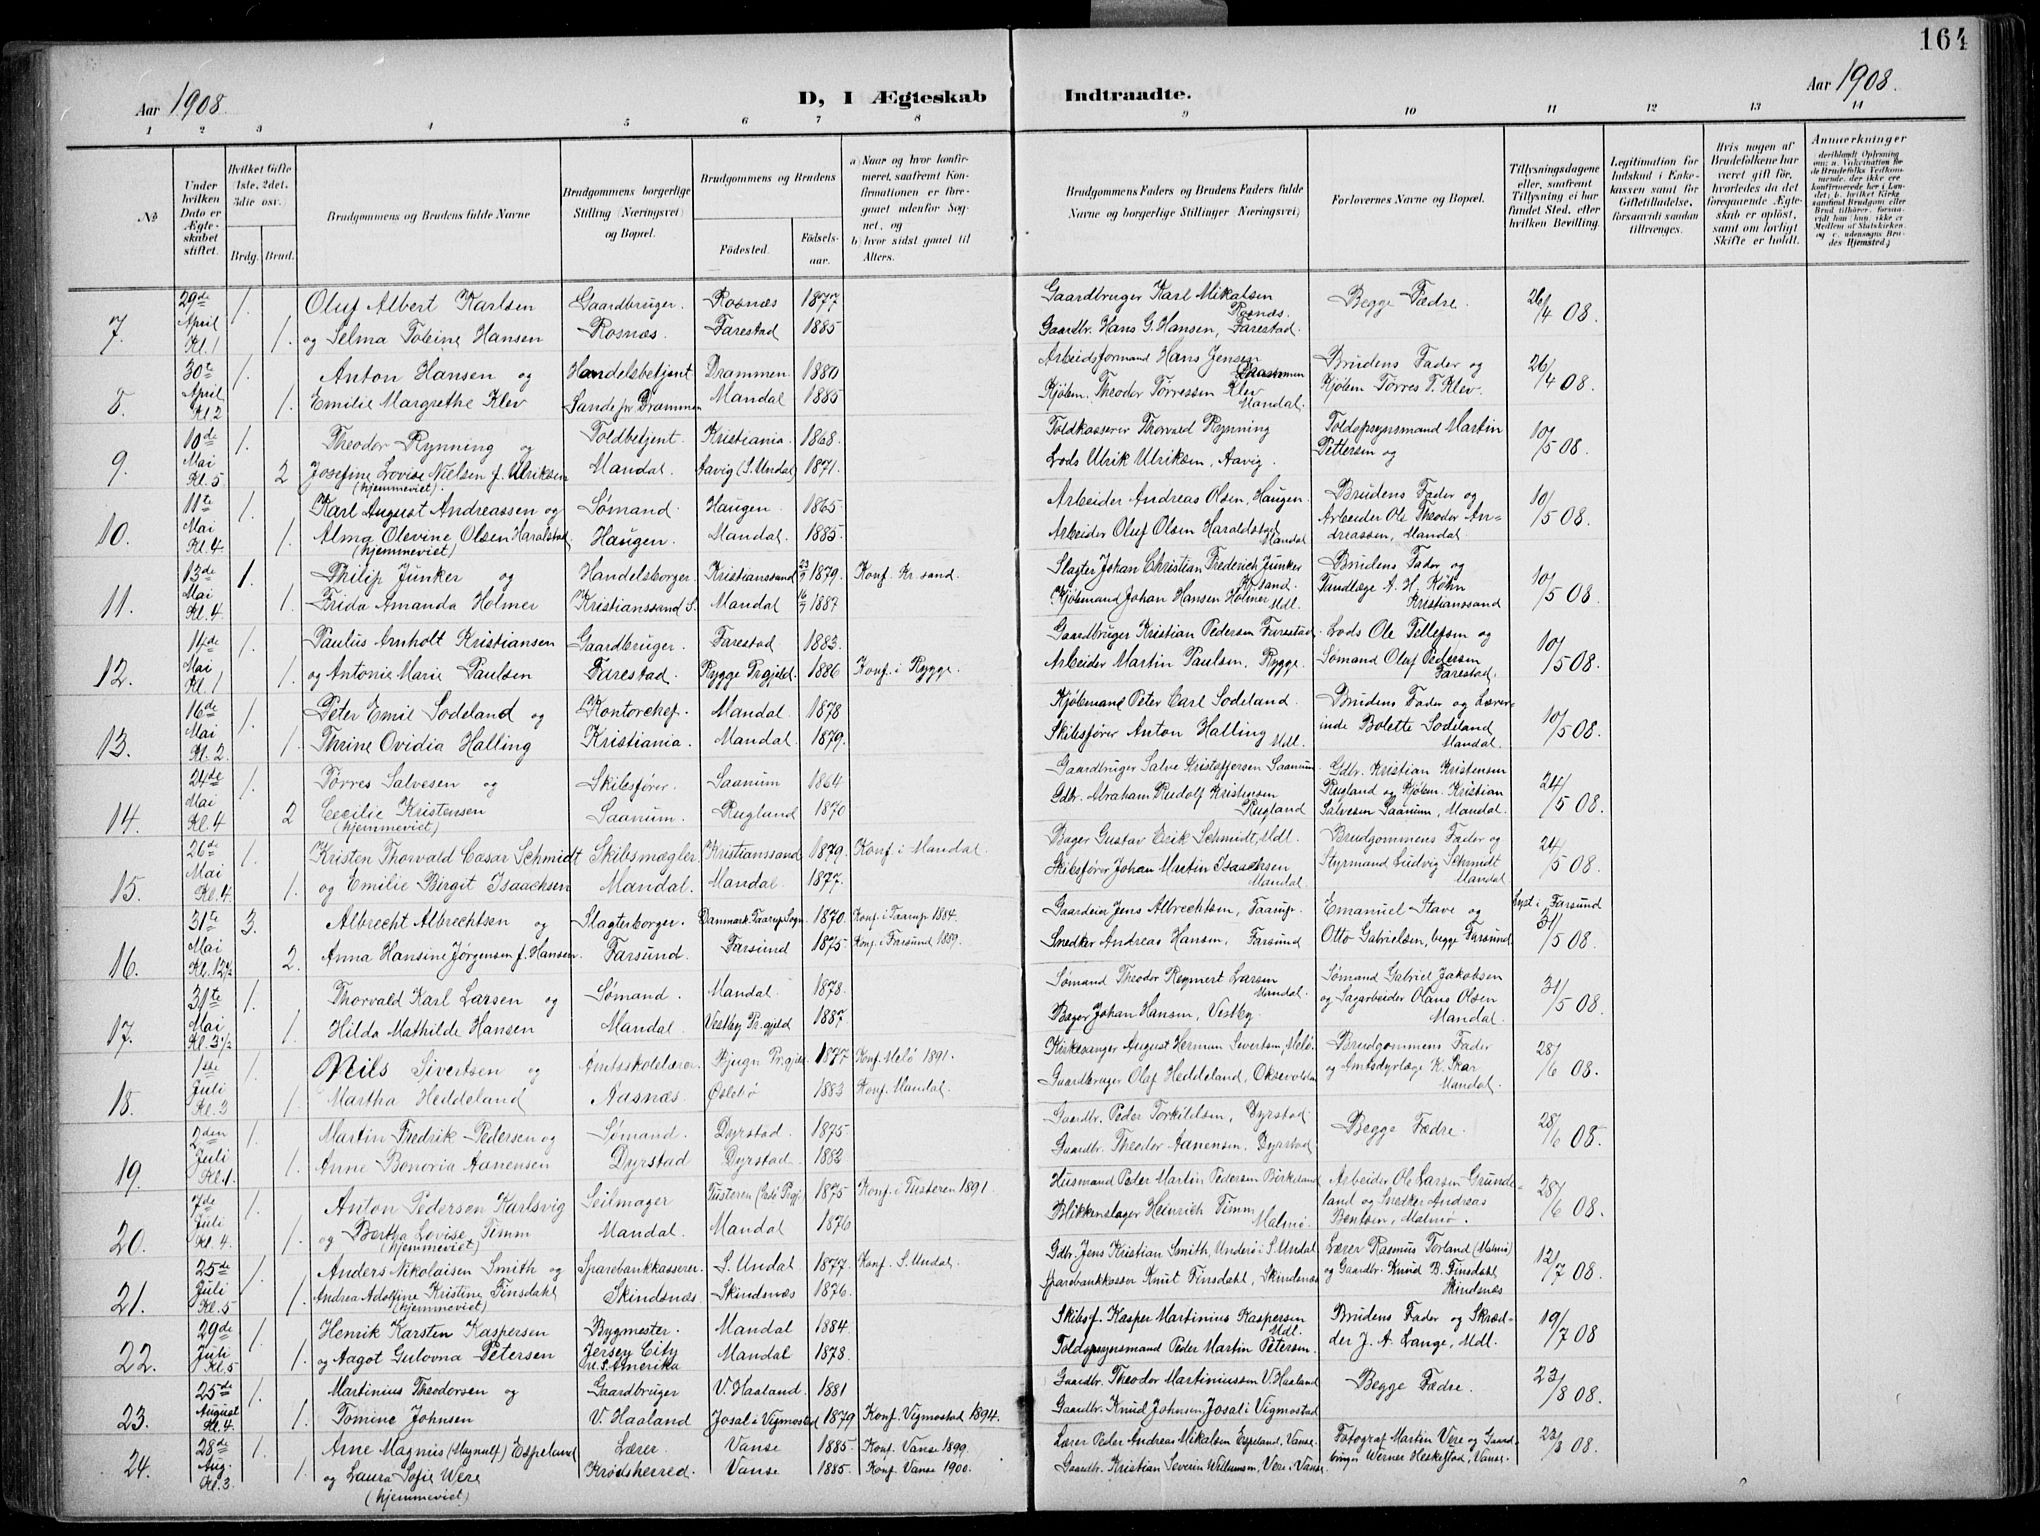 164
Aar 1908.
D, I Ægteskab Indtraadte.
Aar 1908.
1 2 3 4 5 6 7 8 9 10 11 12 13 14
No
Under hvilken Dato er Ægteskabet stiftet.
Hvilket Gifte (1ste, 2det, 3die osv.)
Brdg. Brud.
Brudgommens og Brudens fulde Navne
Brudgommens borgerlige Stilling (Næringsvei) og Bopæl.
Brudgommens og Brudens
Fødested. Fødselsaar.
a) Naar og hvor konfirmeret, saafremt Konfirmationen er foregaaet udenfor Sognet, og
b) hvor sidst gaaet til Alters.
Brudgommens Faders og Brudens Faders fulde Navne og borgerlige Stillinger (Næringsvei)
Forlovernes Navne og Bopæl.
Tillysningsdagene eller, saafremt Tillysning ei har fundet Sted, efter hvilken Bevilling.
Legitimation for Indskud i Enkekassen samt for Giftetilladelse, forsaavidt saadan tiltrænges.
Hvis nogen af Brudefolkene har været gift før, hvorledes da det foregaaende Ægteskab er opløst, samt om lovligt Skifte er holdt.
Anmærkninger
deriblandt Oplysning om: a. Vakcination for de Brudefolks Vedkommende, der ikke ere konfirmerede her i Landet, b. hvilket Kirkesamfund Brudgom eller Brud tilhører, forsaavidt han (hun) ikke er Medlem af Statskirken og c. udensogns Brudes Hjemsted.
7. 29de April Kl. 1 1. Oluf Albert Karlsen Gaardbruger. Rosnæs 1877 Gaardbruger Karl Mikalsen Rosnæs. Begge Fædre. 26/4 08.
1. og Selma Tobine Hansen Rosnæs. Farestad 1885 Gaardbr. Hans G. Hansen, Farestad.
8. 30te April Kl 2 1. Anton Hansen og Handelsbetjent Drammen. 1880 Arbeidsformand Hans Jensen Drammen Brudens Fader og 26/4 08.
1. Emilie Margrethe Klev Sande pr Drammen Mandal 1885 Kjøbm. Theodor Tørressen Klev Mandal. Kjøbm Tørres T. Klev.
9. 10de Mai Kl. 5 1. Theodor Rynning og Toldbetjent. Kristiania. 1868. Toldkasserer Thorvald Rynning Toldopsynsmand Martin 10/5 08.
2 Josefine Lovise Nielsen f. Ulriksen Mandal. Aavig (S. Undal) 1871. Lods Ulrik Ulriksen, Aavig. Pettersen og
(hjemmeviet).
10. 11te Mai Kl. 4 1. Karl August Andreassen og Sømand. Haugen. 1865 Arbeider Andreas Olsen, Haugen. Brudens Fader og 10/5 08.
1. Alma Olevine Olsen Haralstad Haugen. Mandal. 1885. Arbeider Oluf Olsen Haraldstad Mandal Arbeider Ole Theodor Andreassen, Mandal
(hjemmeviet)
11. 13de Mai Kl. 4 1. Philip Junker og Handelsborger. Kristianssand 1879. Konf. Kr.sand. Slagter Johan Christian Frederich Junker Kr.sand. Brudens Fader og 10/5 08.
1. Frida Amanda Holmer Kristianssand S. Mandal 1887 Kjøbmand Johan Hansen Holmer Mdl. Tandlæge A. H. Køhn Kristianssand
12. 14de Mai Kl. 1 1. Paulus Arnholt Kristiansen Gaardbruger. Farestad 1883. Gaardbruger Kristian Pedersen Farestad. Lods Ole Tellefsen og 10/5 08.
1. og Antonie Marie Paulsen Farestad. Rygge Prgjeld. 1886 Konf. i Rygge. Arbeider Martin Paulsen, Rygge. Sømand Oluf Pedersen Farestad.
13. 16de Mai Kl. 2. 1. Peter Emil Sodeland og Kontorchef. Mandal. 1878 Kjøbmand Peter Carl Sodeland. Brudens Fader og Lærer- 10/5 08.
1. Thrine Ovidia Halling Kristiania. Mandal. 1879. Skibsfører Anton Halling Mdl. inde Bolette Sodeland Mandal.
14. 24de Mai Kl. 4 1. Tørres Salvesen og Skibsfører. Saanum 1864 Gaardbruger Salve Kristoffersen Saanum. Gdbr. Kristian Kristensen 24/5 08.
2 Cecilie Kristensen Saanum. Rugland 1870 Gdbr. Abraham Rudolf Kristensen Rugland Rugland og Kjøbm. Kristian Salvesen Saanum, Mandal.
(hjemmeviet)
15. 26de Mai Kl. 4. 1. Kristen Thorvald Cæsar Schmidt Skibsmægler. Kristianssand 1879. Konf. i Mandal. Bager Gustav Erik Schmidt, Mdl. Brudgommens Fader og 24/5 08.
1. og Emilie Birgit Isaachsen Mandal. Mandal. 1877. Skibsfører Johan Martin Isaachsen Mandal. Styrmand Ludvig Schmidt Mandal.
16. 31te Mai Kl. 12½ 3. Albrecht Albrechtsen og Slagterborger. Danmark. Taarup Sogn. 1870. Konf. i Taarup 1884. Gaardeier Jens Albrechtsen, Taarup. Emanuel Stave og Lyst i Farsund 31/5 08.
2. Anna Hansine Jørgensen f. Hansen. Farsund. Farsund 1875 Konf. i Farsund 1889. Snedker Andreas Hansen, Farsund Otto Gabrielsen, begge Farsund.
17. 31te Mai Kl. 3½ 1. Thorvald Karl Larsen og Sømand. Mandal 1878. Sømand Theodor Reynert Larsen Mandal. Sømand Gabriel Jakobsen 31/5 08.
1. Hilda Mathilde Hansen Mandal. Vestby Pr.gjeld 1887 Bager Johan Hansen, Vestby. og Sagarbeider Olaus Olsen Mandal.
18. 1ste Juli Kl. 3 1. Nils Sivertsen og Amtsskolelærer Pr.gjeld 1877 Konf. Melö 1891. Kirkesanger August Herman Sivertsen, Melö. Brudgommens Fader 28/6 08.
1. Martha Heddeland Aasnæs. Øslebø 1883 Konf. Mandal. Gaardbruger Olaf Heddeland, og Amtsdyrlæge K. Skar Mandal.
19. 2den Juli Kl. 1. 1. Martin Fredrik Pedersen og Sømand. Dyrstad. 1875. Gaardbr. Peder Torkildsen, Dyrstad. Begge Fædre. 28/6 08.
1. Anne Bonoria Aanensen Dyrstad Dyrstad. 1883 Gaardbr. Theodor Aanensen, Dyrstad
20. 7de Juli Kl. 4. 1. Anton Pedersen Karlsvig Seilmager Tusteren 1875 Konf. i Tusteren 1891. Husmand Peder Martin Pedersen Birkeland Arbeider Ole Larsen Grunde- 28/6 08.
1. og Bertha Lovise Timm Mandal. Mandal 1876 Blikkenslager Heinrich Timm Malmø. land og Snedker Andreas Bentsen, Malmø.
(hjemmeviet)
21. 25de Juli Kl. 5 1. Anders Nikolaisen Smith og Sparebankkasserer S. Undal 1877. Konf. S. Undal. Gdbr. Jens Kristian Smith, Underö i S. Undal Lærer Rasmus Torland (Malmö) 12/7 08.
1. Andrea Adolfine Kristine Finsdahl Skindsnæs. Skindsnæs 1876. Sparebankkasser Knut Finsdahl, Skindsnæs og Gaardbr. Knud B. Finsdahl, Skindsnæs
(hjemmeviet)
22. 29de Juli Kl. 5 1. Henrik Karsten Kaspersen Bygmester. Mandal 1884. Skibsf. Kasper Martinius Kaspersen Mdl. Brudens Fader og Skræd- 19/7 08
1. og Aagot Gulovna Petersen Jersey City N. Amerika Mandal 1878. Toldopsynsmand Peder Martin Petersen. der J. A. Lange, Mdl.
23. 25de August Kl. 4. 1. Martinius Theodorsen og Gaardbruger V. Haaland. 1881 Gaardbr. Theodor Martiniussen V. Haaland Begge Fædre. 23/8 08.
1. Tomine Johnsen V. Haaland Josal i Vigmostad 1879 Konf. Vigmostad 1894. Gaardbr. Knud Johnsen Josal i Vigmostad
24. 28de Aug. Kl. 3. 1. Arne Magnus (Magnulf) Espeland Lærer. Vanse 1885. Konf. Vanse 1899. Lærer Peder Andreas Mikalsen Espeland, Vanse. Fotograf Martin Vere og Gaard- 23/8 08.
1. og Laura Sofie Were Krødsherred. Vanse 1885. Konf. Vanse 1900. Gaardbr. Kristian Severin Willumsen, Vere, Vanse. bruger Werner Heskestad, Vanse.
(hjemmeviet)